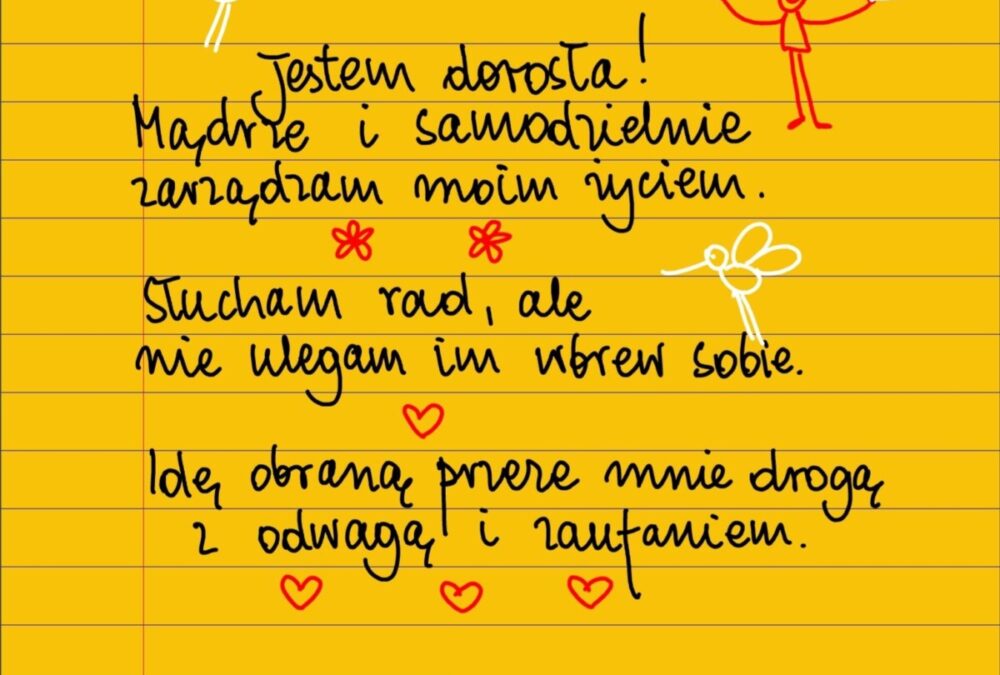 Jestem dorosła!
Mądrze i samodzielnie
zarządzam moim życiem.
Słucham rad, ale
nie ulegam im wbrew sobie.
Idę obraną przeze mnie drogą
z odwagą i zaufaniem.